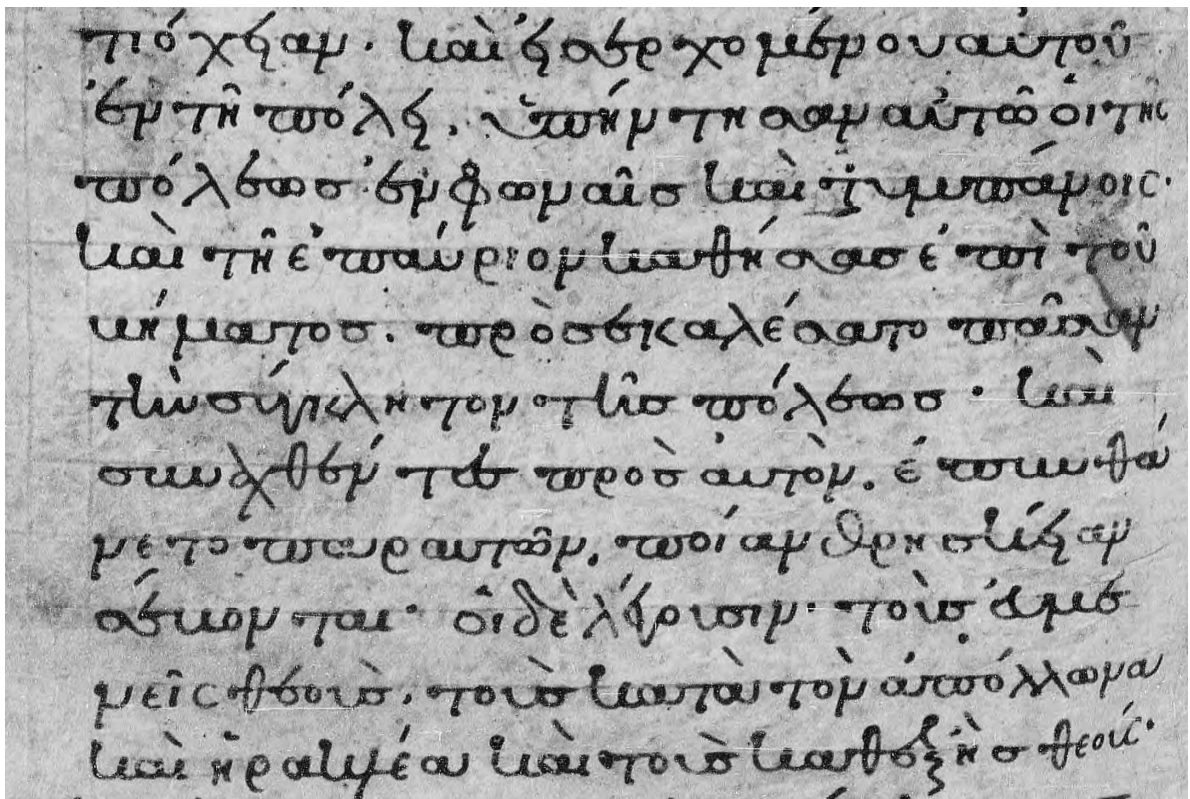 τιόχειαν· καὶ εἰσερχομένου αὐτοῦ
ἐν τῇ πόλει, ὑπήντησαν αὐτῶ οἱ τῆς
πόλεως ἐν φωναῖσ καὶ τυμπάνοις·
καὶ τῆ ἐπαύριον καθήσασ ἐπὶ τοῦ
βήματοσ. προσεκαλέσατο πᾶσαν
τὴν σύγκλητον τῆσ πόλεωσ· καὶ
συναχθέντεσ προσ αὐτὸν. ἐπυνθά
νετο παρ αυτῶν, ποίαν θρησκείαν
σέβονται· οἱ δὲ λέγουσιν· τοὺσ
μεῖς θεοὺσ, τοὺσ κατὰ τὸν ἀπόλλωνα
καὶ καὶ τοὺσ καθεξῆσ θεοίς·